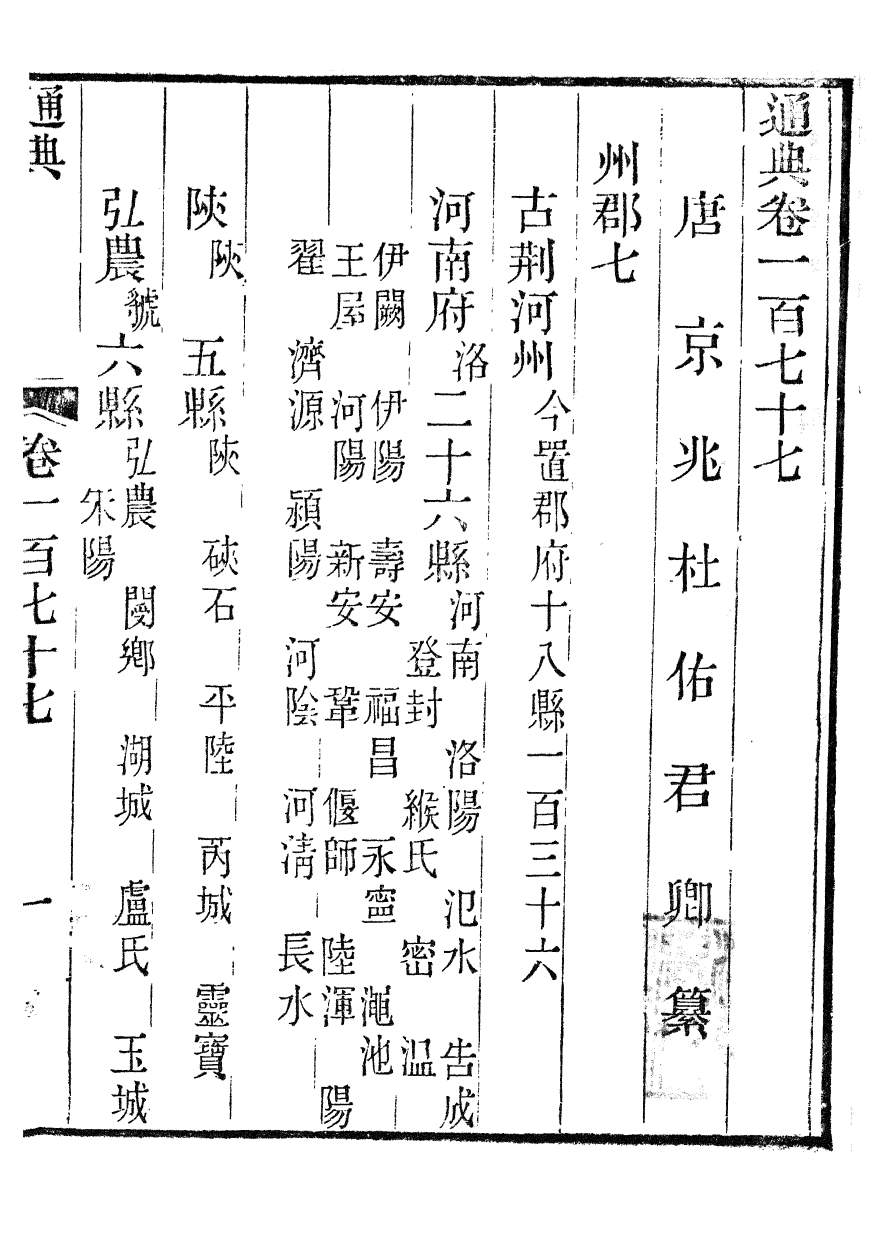 通典卷一百七十七
唐京兆杜佑君卿纂
州郡七
古荆河州今置郡府十八縣一百三十六
河南府洛二十六縣河南洛陽氾水告成
登封緱氏密温
伊闕伊陽壽安福昌永寧澠池
王屋河陽新安鞏偃師陸渾陽
翟濟源潁陽河陰河淸長水
陝陝五縣陝硤石平陸芮城靈寶
弘農虢六縣弘農閿鄉湖城盧氏玉城
朱陽
通典
卷一百七十七
一